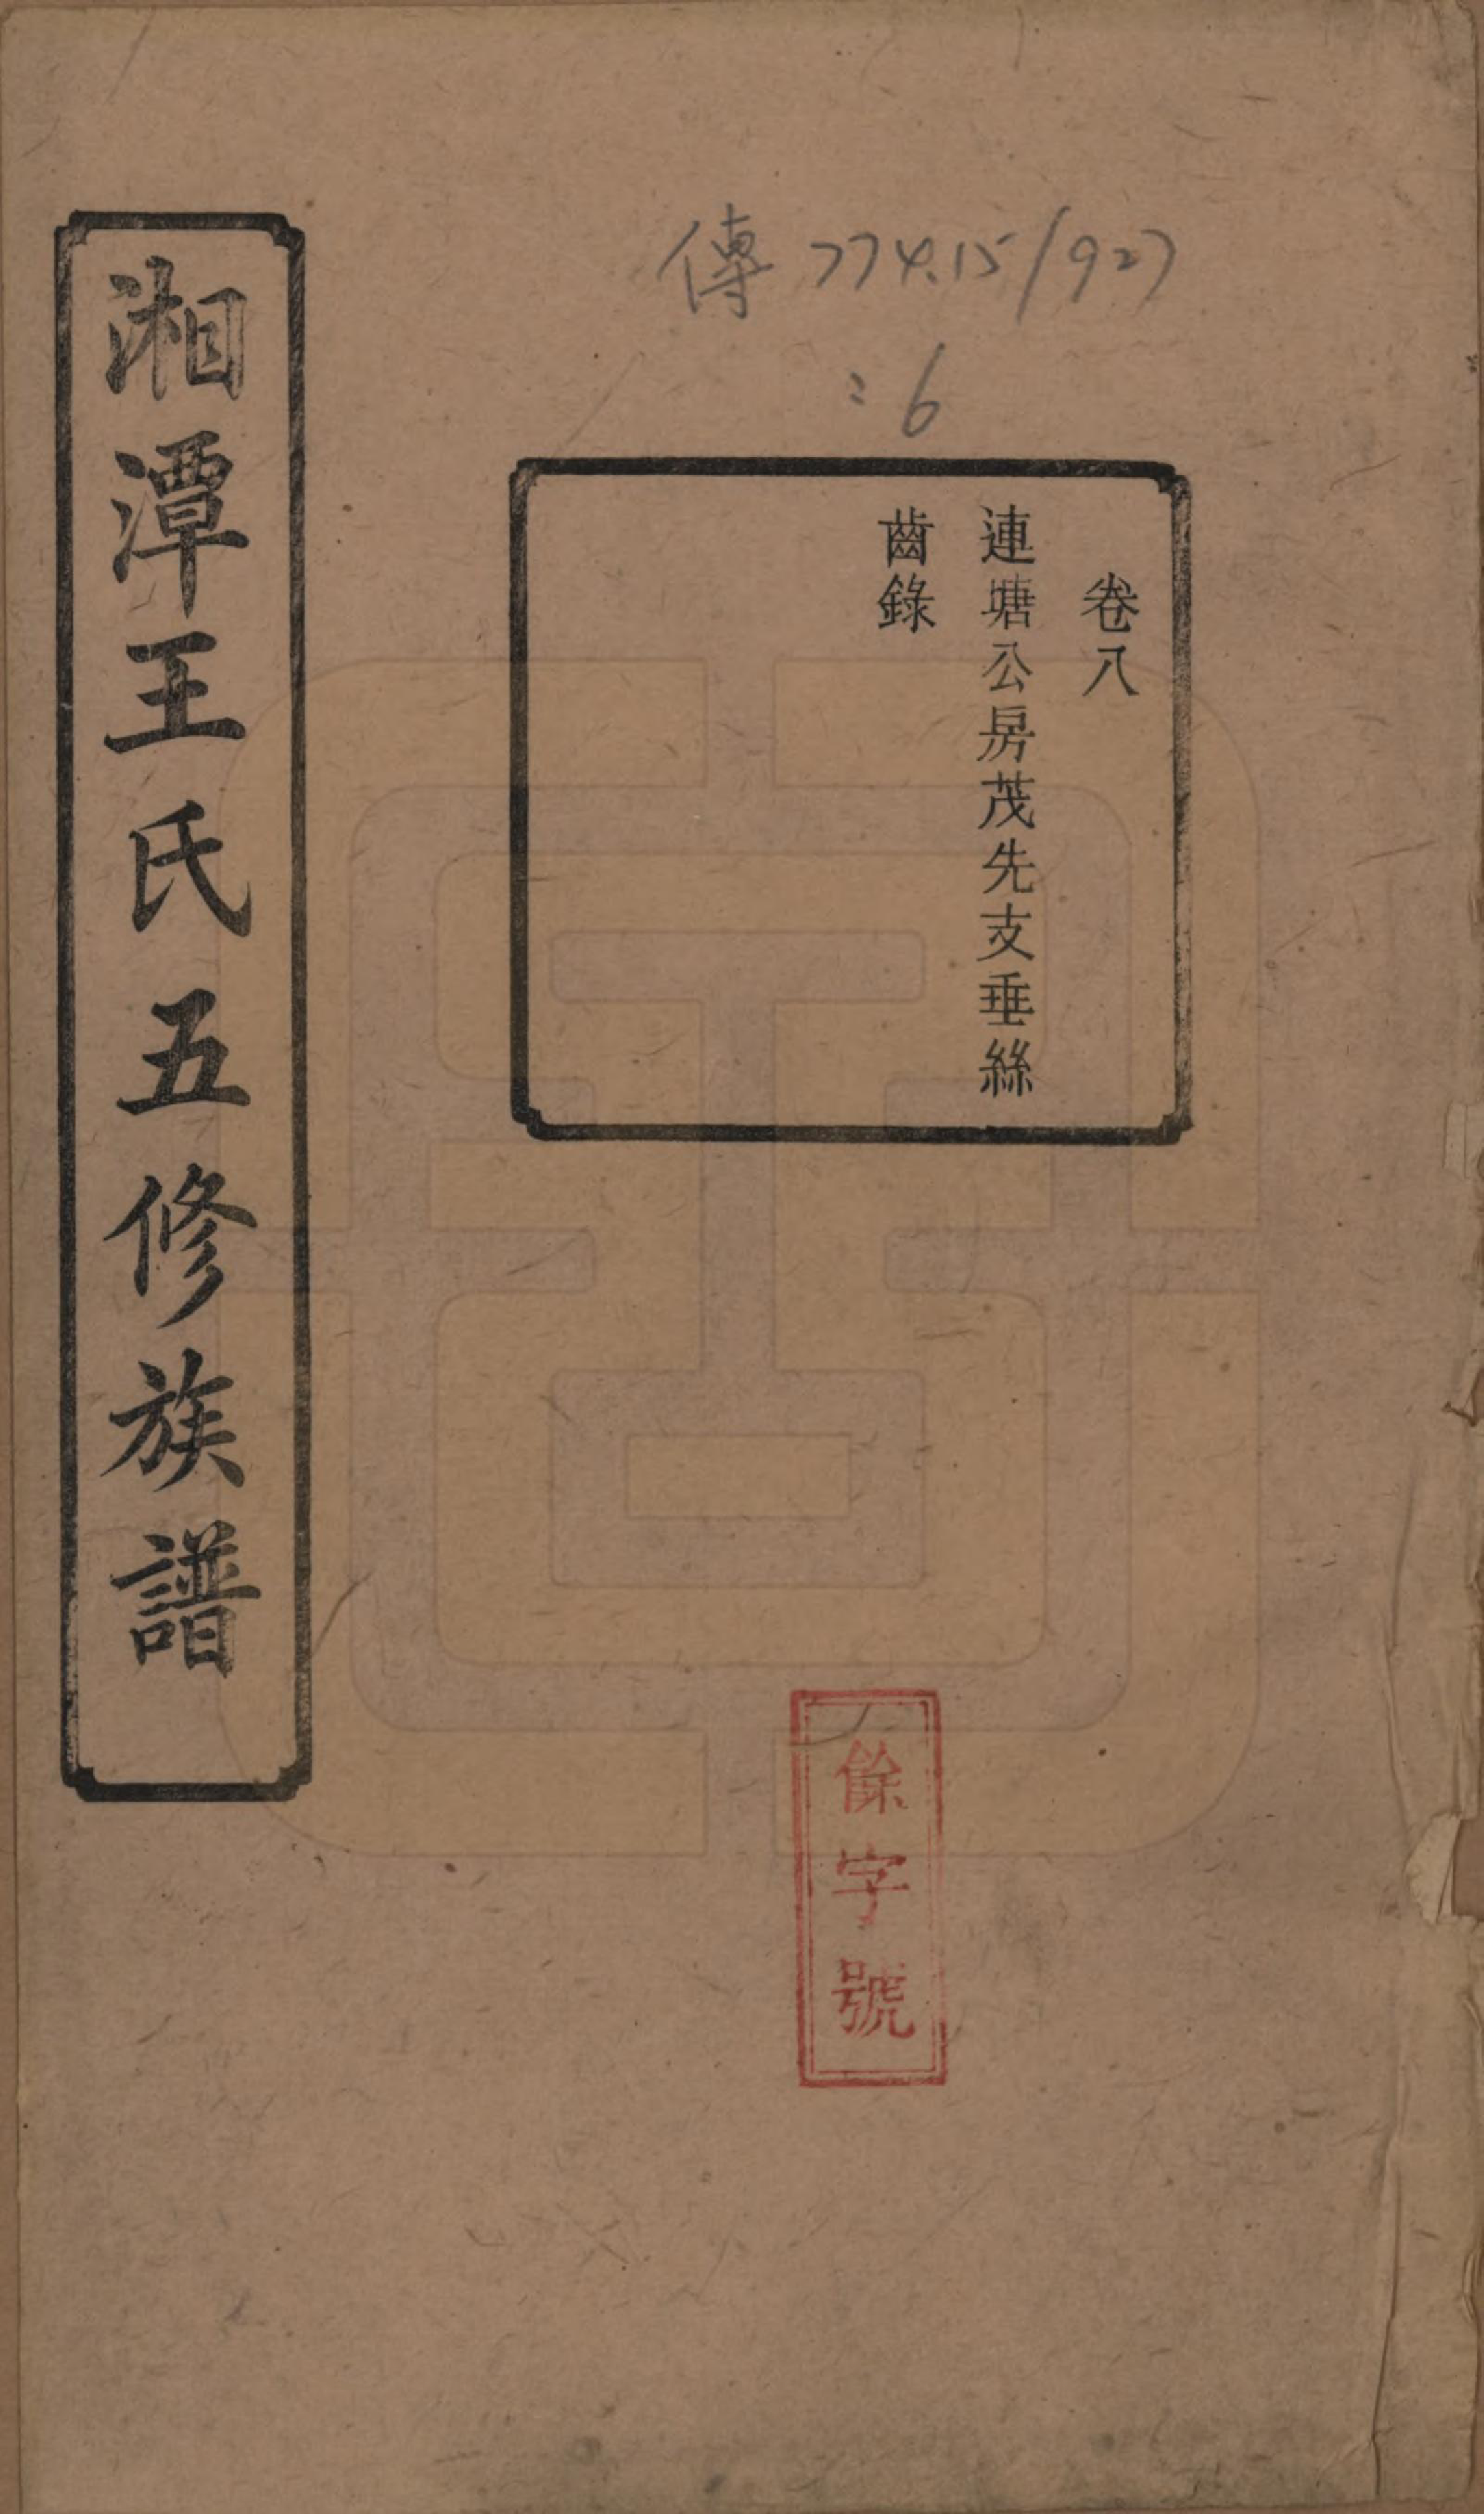 傳 774.15/927
:6
卷八
連塘公房茂先支垂絲
齒錄
湘潭王氏五修族譜
餘字號